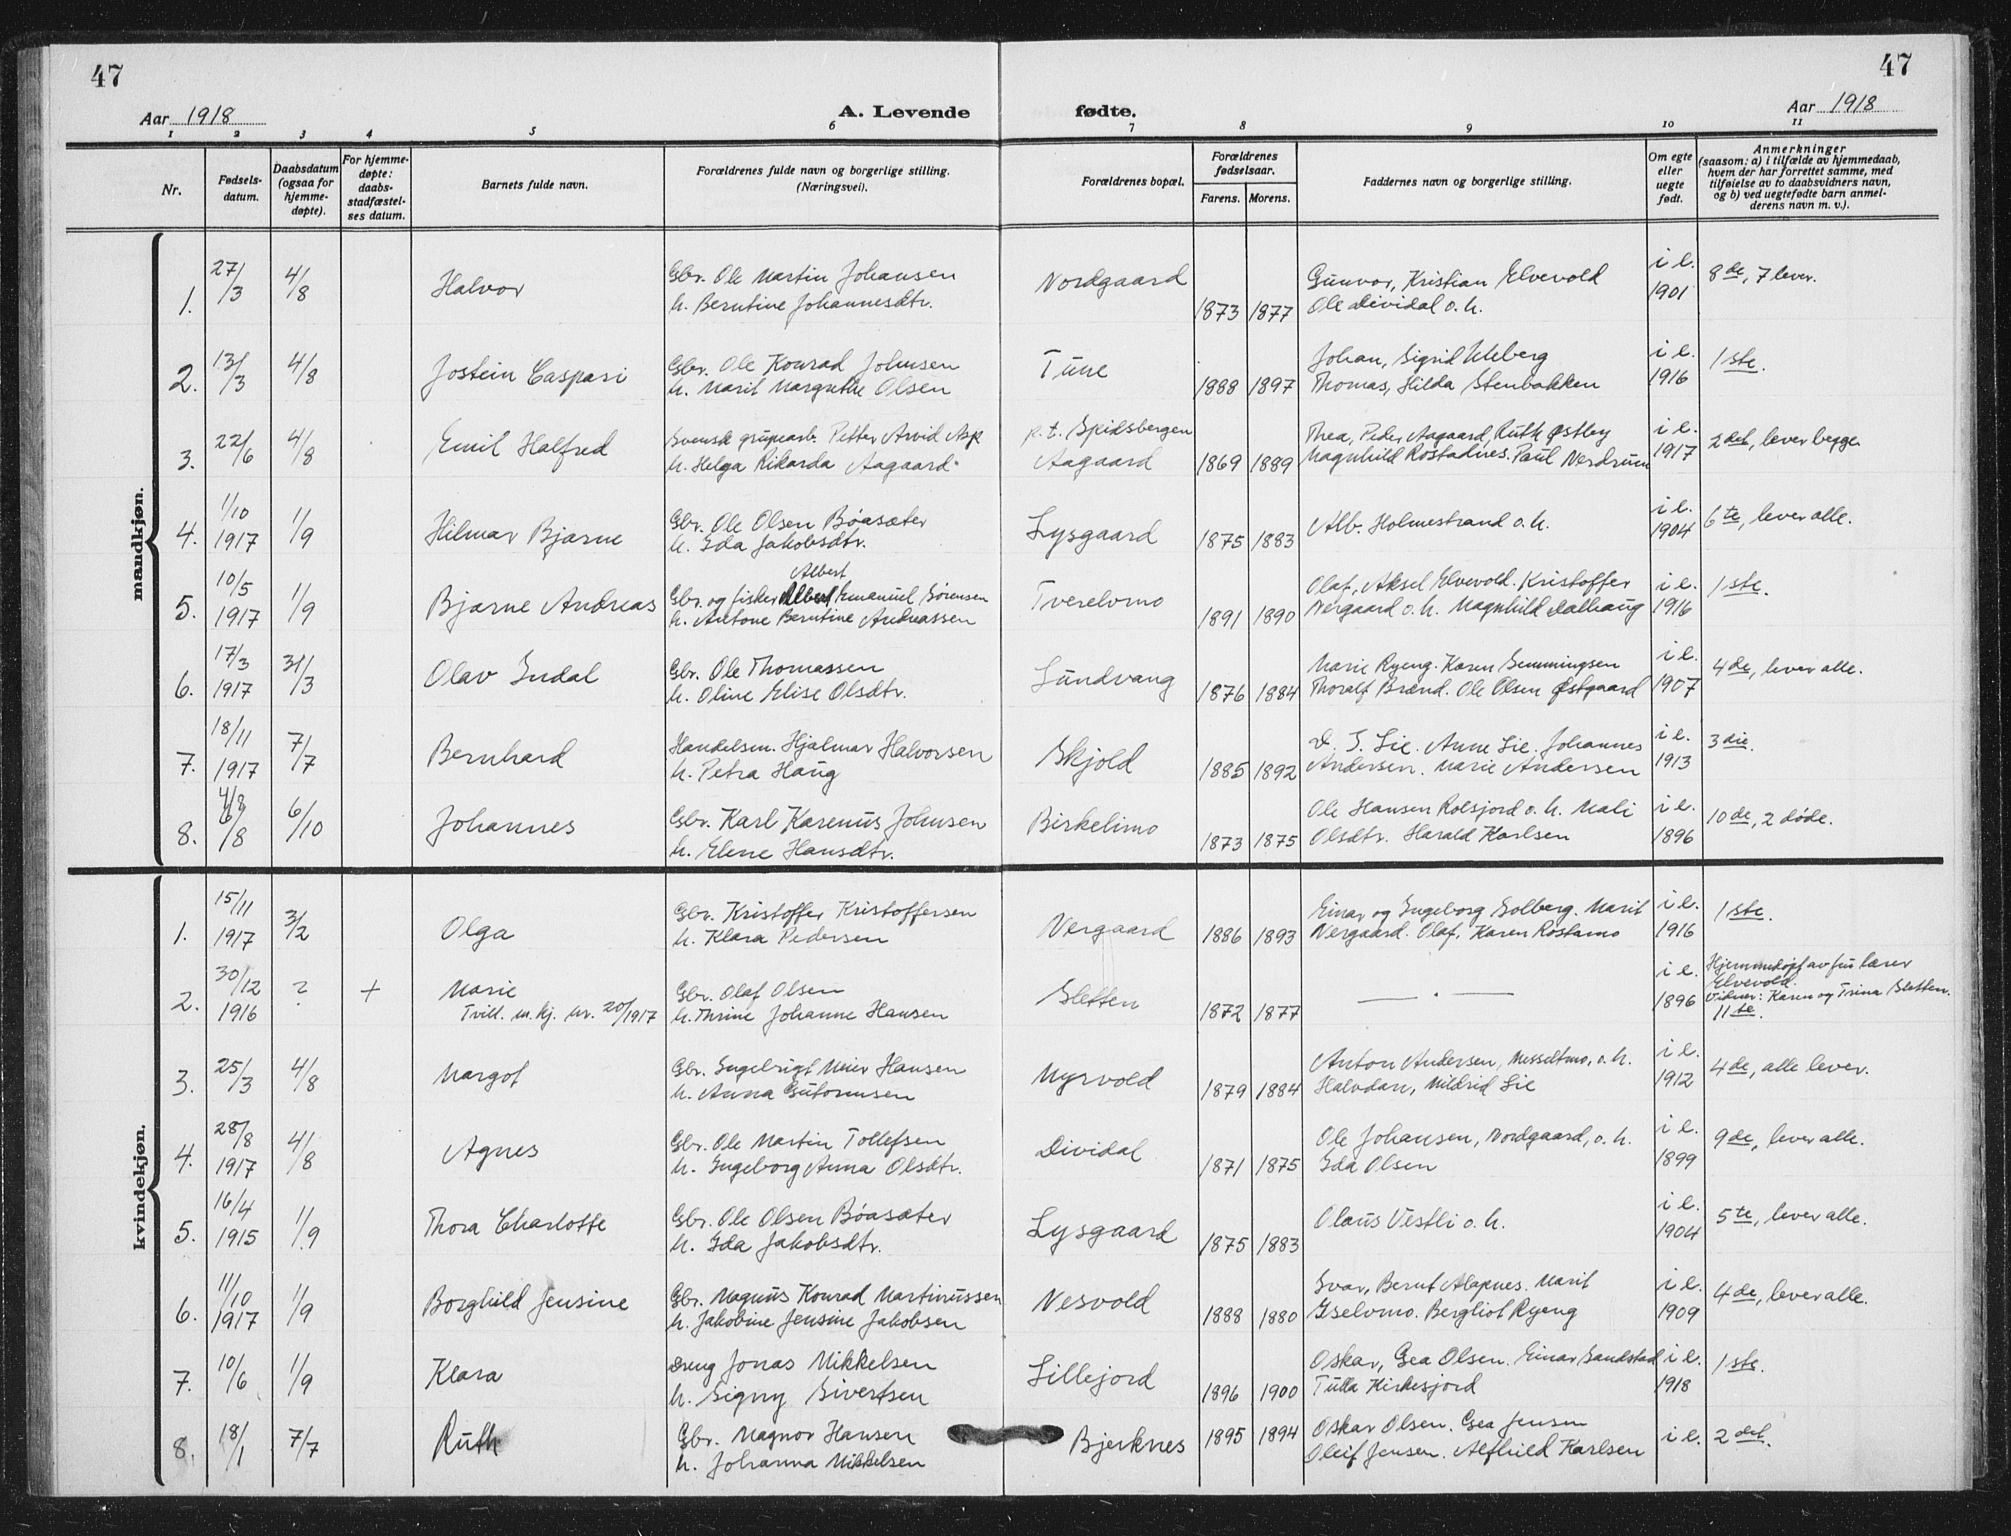 47
47
Aar 1918
A. Levende
fødte.
Aar 1918
1 2 3 4 5 6 7 8 9 10 11
Nr.
Fødsels-
datum.
Daabsdatum
(ogsaa for
hjemme-
døpte).
For hjemme-
døpte:
daabs-
stadfæstel-
ses datum.
Barnets fulde navn.
Forældrenes fulde navn og borgerlige stilling.
(Næringsvei).
Forældrenes bopæl.
Forældrenes
fødselsaar.
Farens. Morens.
Faddernes navn og borgerlige stilling.
Om egte
eller
uegte
født.
Anmerkninger
(saasom: a) i tilfælde av hjemmedaab,
hvem der har forrettet samme, med
tilføielse av to daabsvidners navn,
og b) ved uegtefødte barn anmel-
derens navn m. v.).
mandkjøn.
1. 27/3 4/8 Halvor
Gbr. Ole Martin Johansen
h. Berntine Johannesdtr.
Nordgaard 1873 1877
Gunvor, Kristian Elvevold
Ole Dividal o. h.
i e.
1901
8de, 7 lever.
2. 13/3 4/8 Jostein Caspari
Gbr. Ole Konrad Johnsen
h. Marit Margrethe Olsen
Tune 1888 1897
Johan, Sigrid Uleberg
Thomas, Hilda Stenbakken
i e.
1916
1ste.
3. 22/6 4/8 Emil Halfred
Svensk grupearb. Petter Arvid Asp
h. Helga Rikarda Aagaard.
p. t. Spidsbergen
Aagaard 1869 1889
Thea, Peder Aagaard, Ruth Østby
Magnhild Rostadnes. Paul Nerdrum
i e.
1917
2det, lever begge
4. 1/10
1917 1/9 Hilmar Bjarne
Gbr. Ole Olsen Bøasæter
h. Ida Jakobsdtr.
Lysgaard 1875 1883
Alb. Holmestrand o. h.
i e.
1904
6te, lever alle.
5. 10/5
1917 1/9 Bjarne Andreas
Albert
Gbr. og fisker Albert Emanuel Sørensen
h. Antone Berntine Andreassen
Tverelvmo 1891 1890
Olaf, Aksel Elvevold. Kristoffer
Nergaard o. h. Magnhild Dalhaug
i e.
1916
1ste.
6. 17/3
1917 31/3 Olav Indal
Gbr. Ole Thomassen
h. Oline Elise Olsdtr.
Lundvang 1876 1884
Marie Ryeng. Karen Gemmingsen
Thoralf Brænd. Ole Olsen Østgaard
i e.
1907
4de, lever alle.
7. 18/11
1917 7/7 Bernhard
Handelsm. Hjalmar Halvorsen
h. Petra Haug
Skjold 1885 1892
Lie. Anne Lie. Johannes
Andersen. Marie Andersen
i e.
1913
3die.
8. 4/8
6/8 6/10 Johannes
Gbr. Karl Karenus Johnsen
h. Elene Hansdtr.
Birkelimo 1873 1875
Ole Hansen Rolsjord o. h. Mali
Olsdtr. Harald Karlsen
i e.
1896
10de, 2 døde.
kvindekjøn.
1. 15/11
1917 3/2 Olga
Gbr. Kristoffer Kristoffersen
h. Klara Pedersen
Nergaard 1886 1893
Einar og Ingeborg Solberg. Marit
Nergaard. Olaf, Karen Rostamo
i e.
1916
1ste.
2. 30/12
1916 ? + Marie
Tvill. m. kj. nr. 20/1917
Gbr. Olaf Olsen
h. Thrine Johanne Hansen
Sletten 1872 1877
— . —
i e.
1896
Hjemmedøpt av fru lærer
Elvevold.
Vidner: Karen og Trina Sletten.
11te.
3. 25/3 4/8 Margot
Gbr. Ingebrigt Meier Hansen
h. Anna Gutormsen
Myrvold 1879 1884
Anton Andersen, Messeltmo, o. h.
Halvdan, Mildrid Lie
i e.
1912
4de, alle lever.
4. 28/8
1917 4/8 Agnes
Gbr. Ole Martin Tollefsen
h. Ingeborg Anna Olsdtr.
Dividal 1871 1875
Ole Johansen, Nordgaard, o. h.
Ida Olsen
i e.
1899
9de, lever alle.
5. 16/4
1915 1/9 Thora Charlotte
Gbr. Ole Olsen Bøasæter
h. Ida Jakobsdtr.
Lysgaard 1875 1883
Olaus Vestli o. h.
i e.
1904
5te, lever alle.
6. 11/10
1917 1/9 Borghild Jensine
Gbr. Magnus Konrad Martinussen
h. Jakobine Jensine Jakobsen
Nesvold 1888 1880
Ivar, Bernt Alapnes. Marit
Iselvmo. Bergliot Ryeng
i e.
1909
4de, lever alle.
7. 10/6 1/9 Klara
Dreng Jonas Mikkelsen
h. Signy Sivertsen
Lillejord 1896 1900
Oskar, Gea Olsen. Einar Sandstad
Tulla Kirkesjord
i e.
1918
1ste.
8. 18/1 7/7 Ruth
Gbr. Magnor Hansen
h. Johanna Mikkelsen
Bjerknes 1895 1894
Oskar Olsen. Gea Jensen
Oleif Jensen. Alfhild Karlsen
i e.
2det.